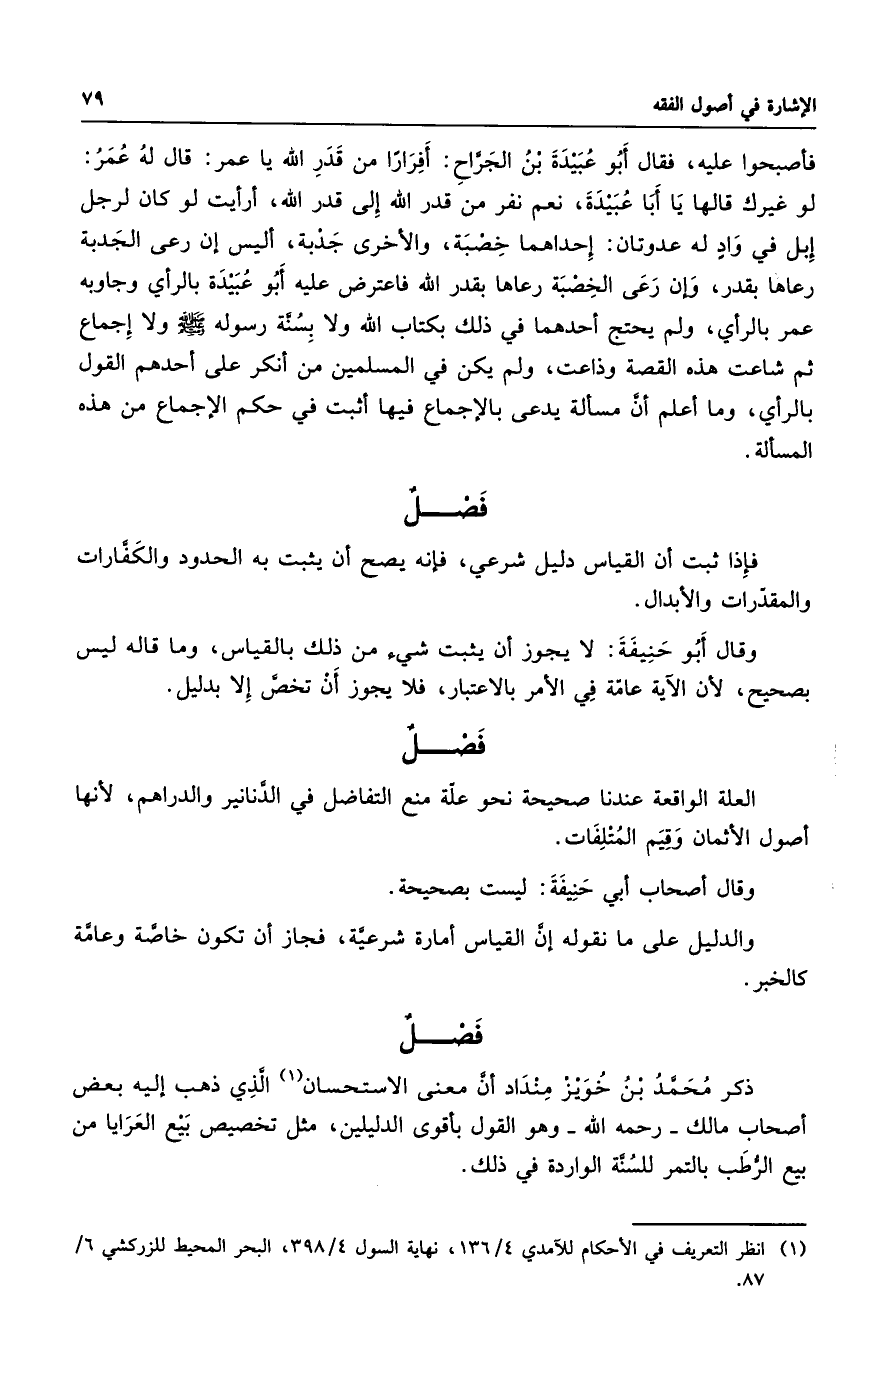 الإشارة في أصول الفقه ٧٩
فأصبحوا عليه، فقال أَبُو عُبَيْدَةَ بْنُ الجَرَّاحِ: أَفِرَارًا من قَدَرِ الله يا عمر: قال لهُ عُمَرُ:
لو غيرك قالها يَا أَبَا عُبَيْدَةَ، نعم نفر من قدر الله إلى قدر الله، أرأيت لو كان لرجل
إبل في وَادٍ له عدوتان: إحداهما خِصْبَة، والأخرى جَدْبة، أليس إن رعى الجَدبة
رعاها بقدر، وَإن رَعَى الخِصْبَة رعاها بقدر الله فاعترض عليه أَبُو عُبَيْدَة بالرأي وجاوبه
عمر بالرأي، ولم يحتج أحدهما في ذلك بكتاب الله ولا بِسُنَّة رسوله ﷺ ولا إجماع
ثم شاعت هذه القصة وذاعت، ولم يكن في المسلمين من أنكر على أحدهم القول
بالرأي، وما أعلم أنَّ مسألة يدعى بالإجماع فيها أثبت في حكم الإجماع من هذه
المسألة.
فَصْـــلٌ
فإذا ثبت أن القياس دليل شرعي، فإنه يصح أن يثبت به الحدود والكَفَّارات
والمقدّرات والأبدال.
وقال أَبُو حَنِيفَةَ: لا يجوز أن يثبت شيء من ذلك بالقياس، وما قاله ليس
بصحيح، لأن الآية عامّة فِي الأمر بالاعتبار، فلا يجوز أَنْ تخصَّ إلا بدليل.
فَصْـــلٌ
العلة الواقعة عندنا صحيحة نحو علّة منع التفاضل في الدَّنانير والدراهم، لأنها
أصول الأثمان وَقِيَم المُتْلِفَات.
وقال أصحاب أبي حَنِيفَةَ: ليست بصحيحة.
والدليل على ما نقوله إنَّ القياس أمارة شرعيَّة، فجاز أن تكون خاصَّة وعامَّة
كالخبر.
فَصْـــلٌ
ذكر مُحَمَّدُ بْنُ خُوَيْزْ مِنْدَاد أنَّ معنى الاستحسان(١) الَّذِي ذهب إليه بعض
أصحاب مالك ـ رحمه الله ـ وهو القول بأقوى الدليلين، مثل تخصيص بَيْع العَرَايا من
بيع الرُّطَب بالتمر للسُنَّة الواردة في ذلك.
(١) انظر التعريف في الأحكام للآمدي ١٣٦/٤، نهاية السول ٣٩٨/٤، البحر المحيط للزركشي ٦/
٨٧.